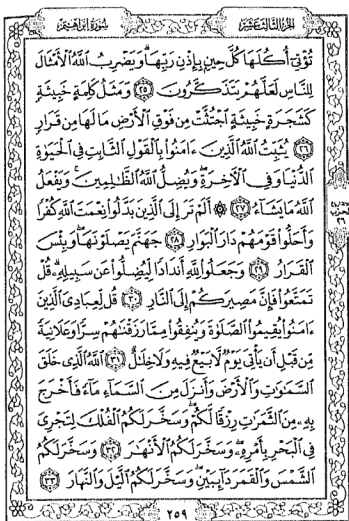 الجزء الثالث عشر سورة إبراهيم
تُؤْتِىٓ أُكُلَهَا كُلَّ حِينٍۭ بِإِذْنِ رَبِّهَا ۗ وَيَضْرِبُ ٱللَّهُ ٱلْأَمْثَالَ
لِلنَّاسِ لَعَلَّهُمْ يَتَذَكَّرُونَ ٢٥ وَمَثَلُ كَلِمَةٍ خَبِيثَةٍ
كَشَجَرَةٍ خَبِيثَةٍ ٱجْتُثَّتْ مِن فَوْقِ ٱلْأَرْضِ مَا لَهَا مِن قَرَارٍ
٢٦ يُثَبِّتُ ٱللَّهُ ٱلَّذِينَ ءَامَنُوا۟ بِٱلْقَوْلِ ٱلثَّابِتِ فِى ٱلْحَيَوٰةِ
ٱلدُّنْيَا وَفِى ٱلْءَاخِرَةِ ۖ وَيُضِلُّ ٱللَّهُ ٱلظَّٰلِمِينَ ۚ وَيَفْعَلُ
ٱللَّهُ مَا يَشَآءُ ٢٧ ۞ أَلَمْ تَرَ إِلَى ٱلَّذِينَ بَدَّلُوا۟ نِعْمَتَ ٱللَّهِ كُفْرًا
وَأَحَلُّوا۟ قَوْمَهُمْ دَارَ ٱلْبَوَارِ ٢٨ جَهَنَّمَ يَصْلَوْنَهَا ۖ وَبِئْسَ
ٱلْقَرَارُ ٢٩ وَجَعَلُوا۟ لِلَّهِ أَندَادًا لِّيُضِلُّوا۟ عَن سَبِيلِهِۦ ۗ قُلْ
تَمَتَّعُوا۟ فَإِنَّ مَصِيرَكُمْ إِلَى ٱلنَّارِ ٣٠ قُل لِّعِبَادِىَ ٱلَّذِينَ
ءَامَنُوا۟ يُقِيمُوا۟ ٱلصَّلَوٰةَ وَيُنفِقُوا۟ مِمَّا رَزَقْنَٰهُمْ سِرًّا وَعَلَانِيَةً
مِّن قَبْلِ أَن يَأْتِىَ يَوْمٌ لَّا بَيْعٌ فِيهِ وَلَا خِلَٰلٌ ٣١ ٱللَّهُ ٱلَّذِى خَلَقَ
ٱلسَّمَٰوَٰتِ وَٱلْأَرْضَ وَأَنزَلَ مِنَ ٱلسَّمَآءِ مَآءً فَأَخْرَجَ
بِهِۦ مِنَ ٱلثَّمَرَٰتِ رِزْقًا لَّكُمْ ۖ وَسَخَّرَ لَكُمُ ٱلْفُلْكَ لِتَجْرِىَ
فِى ٱلْبَحْرِ بِأَمْرِهِۦ ۖ وَسَخَّرَ لَكُمُ ٱلْأَنْهَٰرَ ٣٢ وَسَخَّرَ لَكُمُ
ٱلشَّمْسَ وَٱلْقَمَرَ دَآئِبَيْنِ ۖ وَسَخَّرَ لَكُمُ ٱلَّيْلَ وَٱلنَّهَارَ ٣٣
٢٥٩